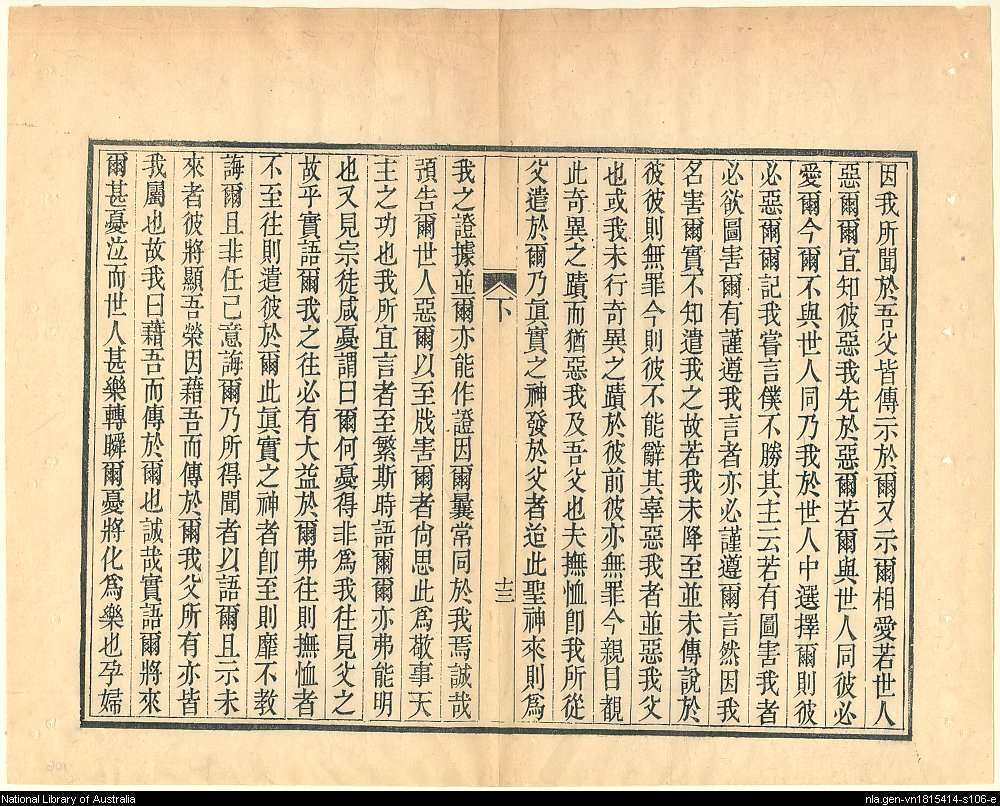 因我所聞於吾父皆傳示於爾又示爾相愛若世人
惡爾爾宜知彼惡我先於惡爾若爾與世人同彼必
愛爾今爾不與世人同乃我於世人中選擇爾則彼
必惡爾爾記我嘗言僕不勝其主云若有圖害我者
必欲圖害爾有謹遵我言者亦必謹遵爾言然因我
名害爾實不知遣我之故若我未降至並未傳說於
彼彼則無罪今則彼不能辭其辜惡我者並惡我父
也或我未行奇異之蹟於彼前彼亦無罪今親目覩
此奇異之蹟而猶惡我及吾父也夫撫恤卽我所從
父遣於爾乃眞實之神發於父者迨此聖神來則爲
下
十三
我之證據並爾亦能作證因爾曩常同於我焉誠哉
預告爾世人惡爾以至戕害爾者尙思此爲敬事天
主之功也我所宜言者至繁斯時語爾爾亦弗能明
也又見宗徒咸憂謂曰爾何憂得非爲我往見父之
故乎實語爾我之往必有大益於爾弗往則撫恤者
不至往則遣彼於爾此眞實之神者卽至則靡不教
誨爾且非任己意誨爾乃所得聞者以語爾且示未
來者彼將顯吾榮因藉吾而傳於爾我父所有亦皆
我屬也故我曰藉吾而傳於爾也誠哉實語爾將來
爾甚憂泣而世人甚樂轉瞬爾憂將化爲樂也孕婦
National Library of Australia
nla.gen-vn1815414-s106-e